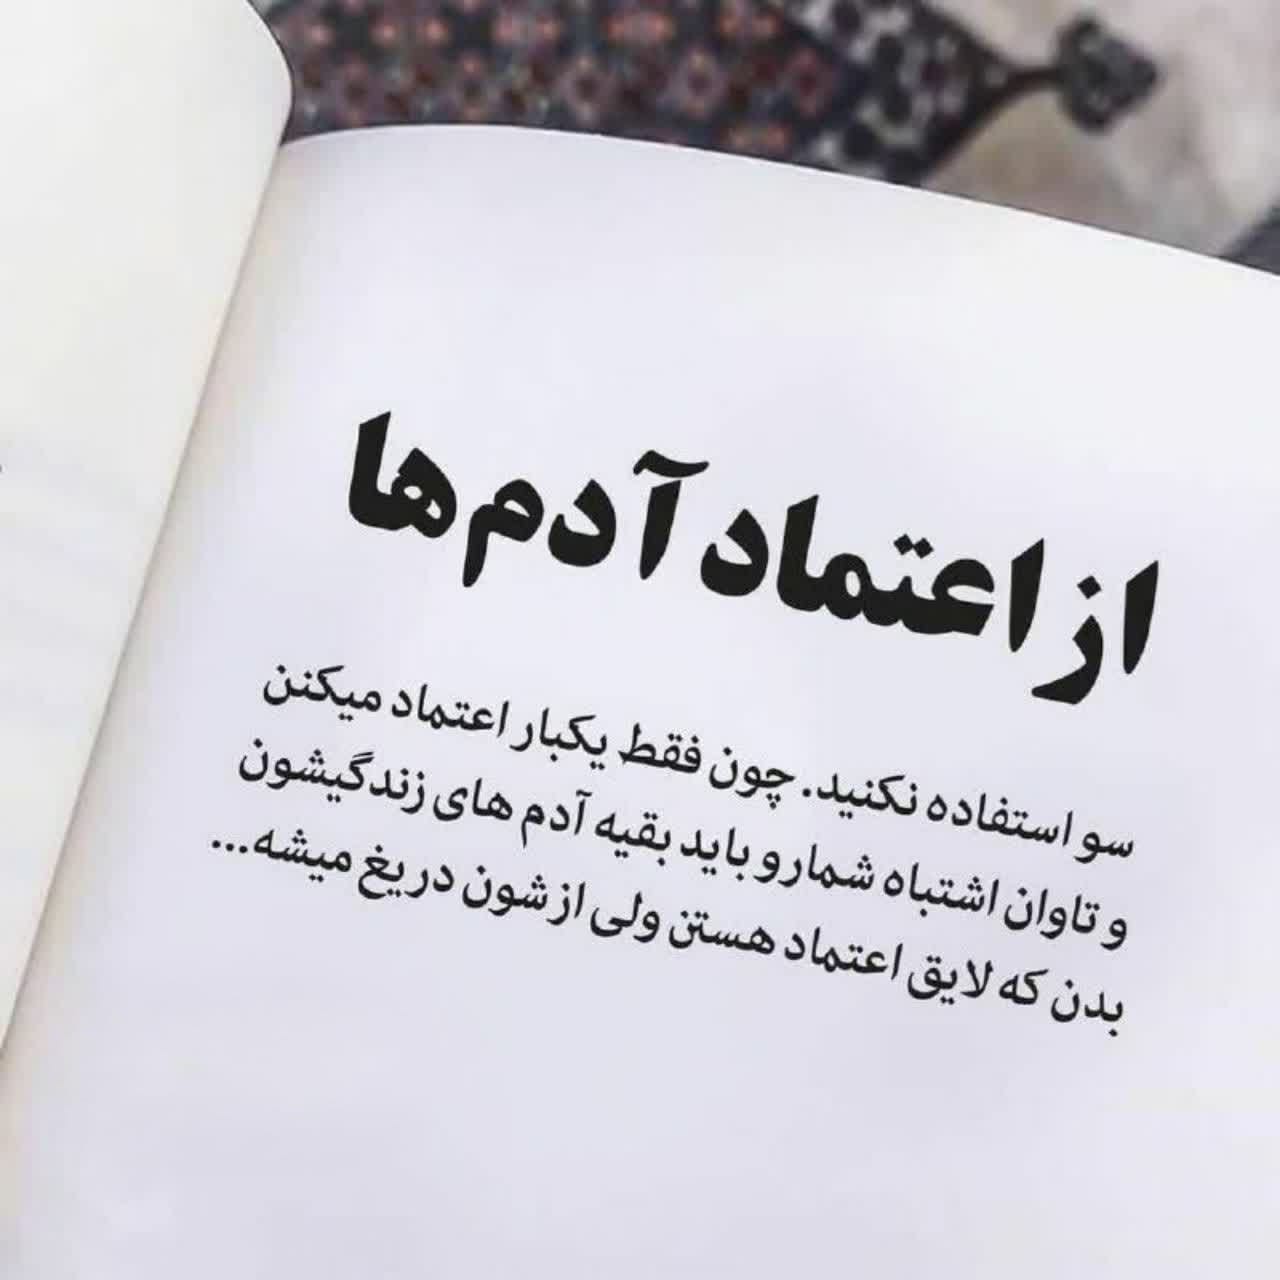 از اعتماد آدم‌ها
سو استفاده نکنید. چون فقط یکبار اعتماد میکنن
و تاوان اشتباه شمارو باید بقیه آدم های زندگیشون
بدن که لایق اعتماد هستن ولی ازشون دریغ میشه...